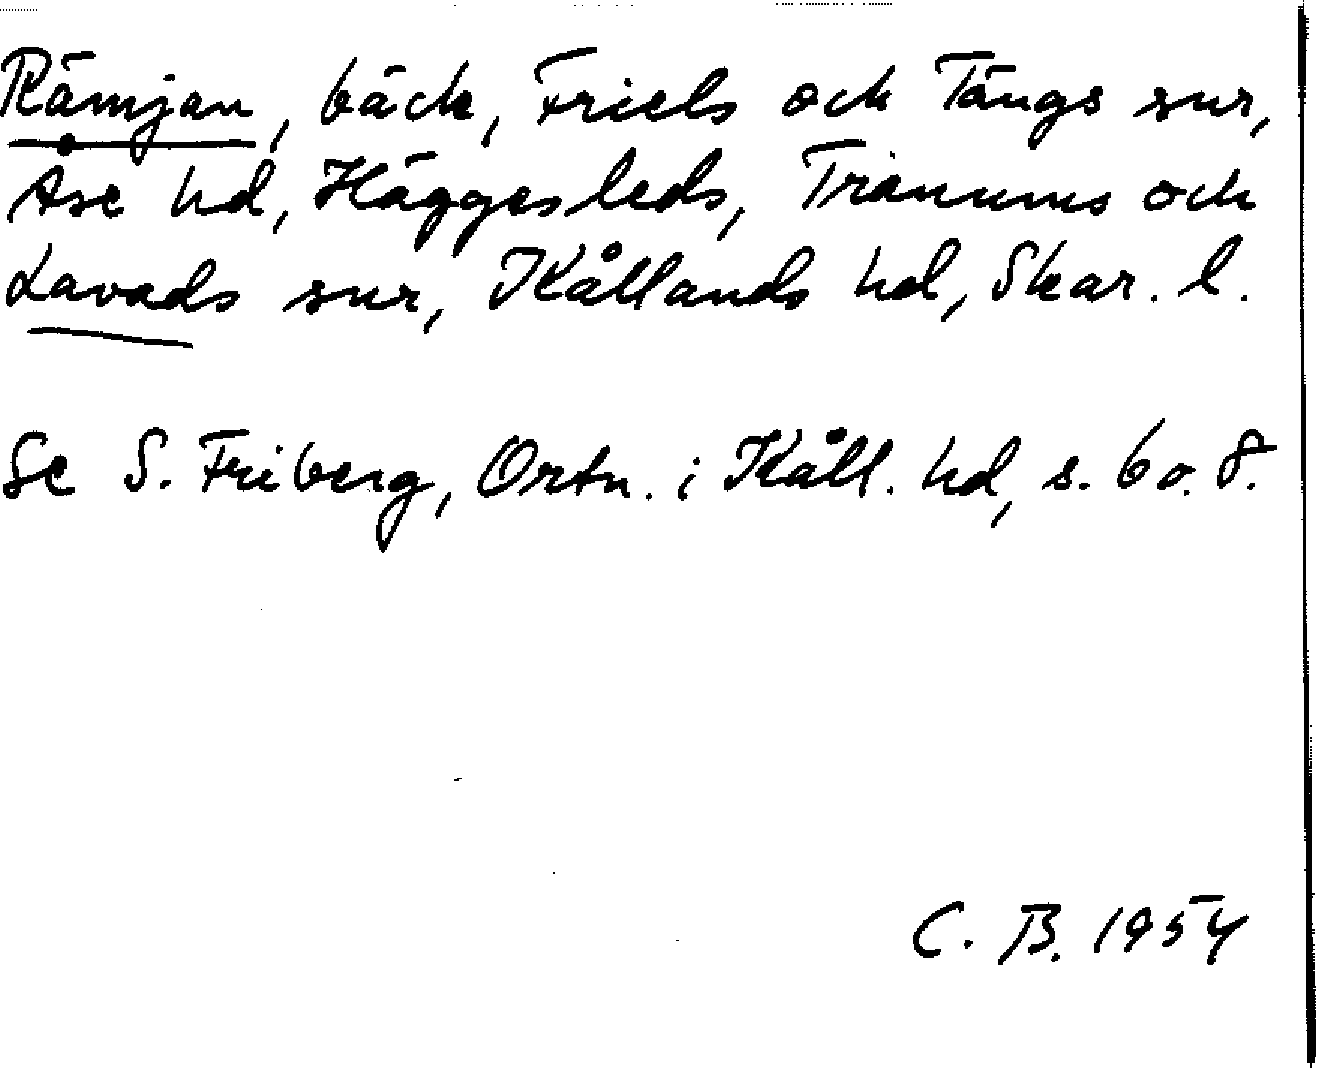 Rämjan, bäck, Friels och Tängs snr,
Åse hd, Häggesleds, Tranums och
Lavads snr, Kållands hd, Skar. l.
Se S. Friberg, Ortn. i Kåll. hd, s. 6 o. 8.
C. B. 1954